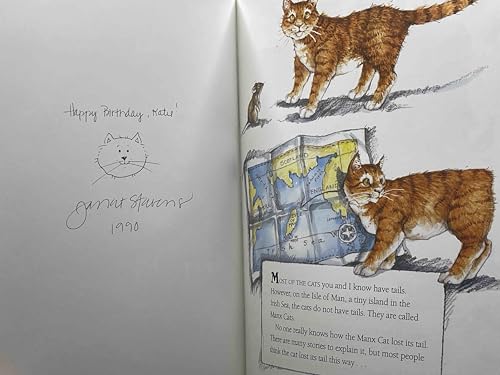 Happy Birthday, Katie!
Janet Stevens
1990
SCOTLAND
ENGLAND
Irish Sea
MOST OF THE CATS you and I know have tails.
However, on the Isle of Man, a tiny island in the
Irish Sea, the cats do not have tails. They are called
Manx Cats.
No one really knows how the Manx Cat lost its tail.
There are many stories to explain it, but most people
think the cat lost its tail this way . . .